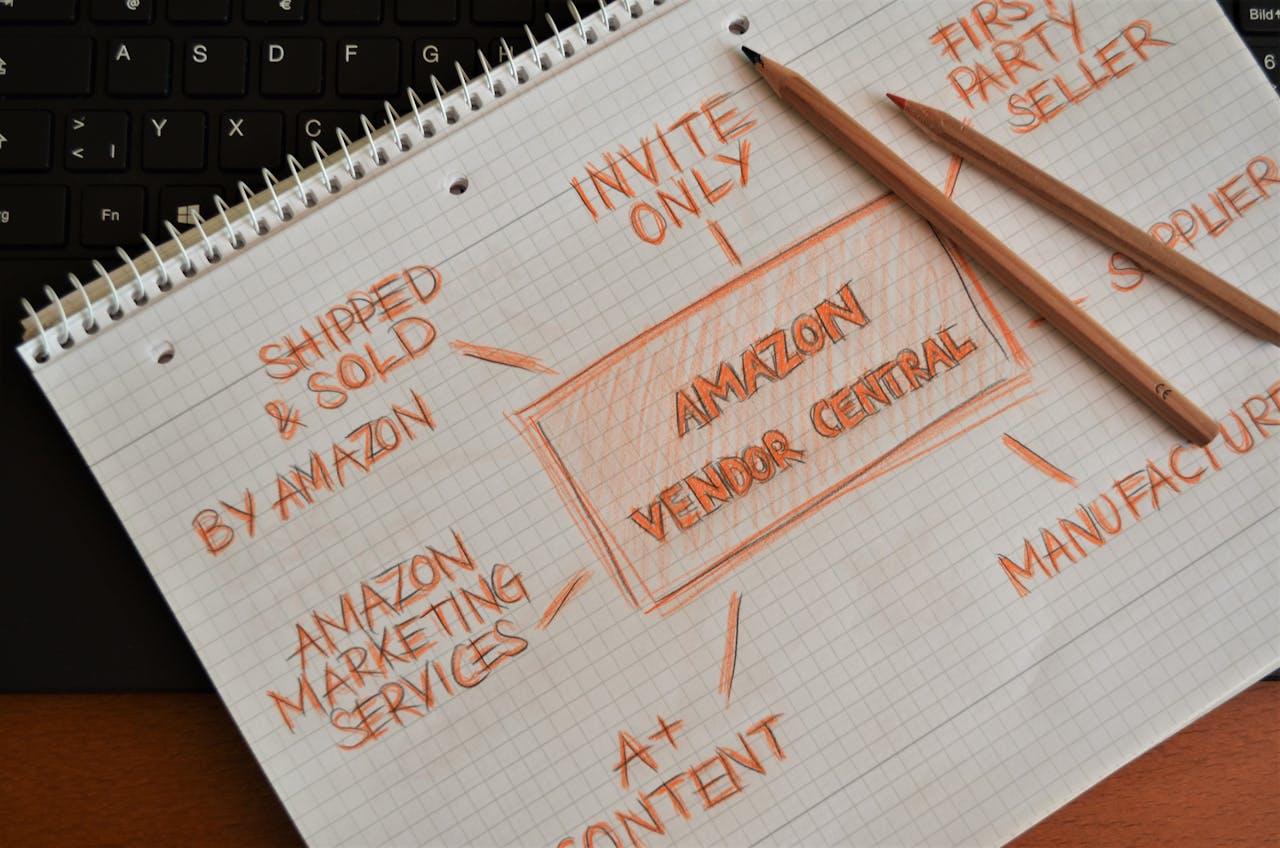 Bild
6
A S D F G H
> < |
Y X C
Fn
FIRST
PARTY
SELLER
INVITE
ONLY
SUPPLIER
SHIPPED
& SOLD
BY AMAZON
AMAZON
VENDOR CENTRAL
MANUFACTURE
AMAZON
MARKETING
SERVICES
A+
CONTENT